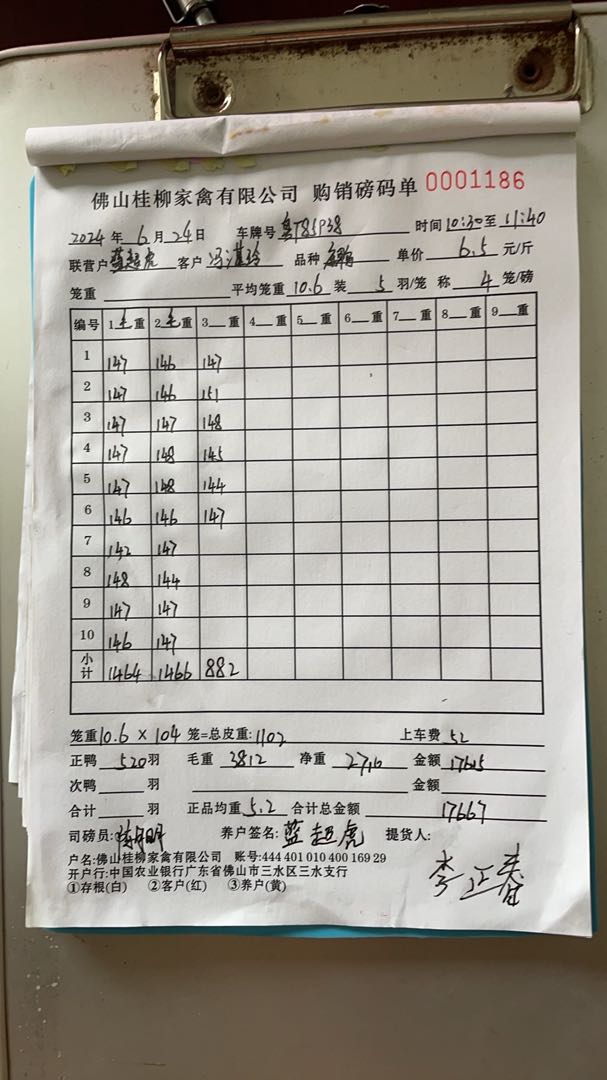 佛山桂柳家禽有限公司 购销磅码单 0001186
2024年 6月 24日 车牌号 粤T85P38 时间 10:30 至 11:40
联营户 蓝超虎 客户 冯 品种 单价 6.5 元/斤
笼重 平均笼重 10.6 装 5 羽/笼 称 4 笼/磅
编号 1 毛 重 2 毛 重 3 重 4 重 5 重 6 重 7 重 8 重 9 重
1 147 146 147
2 147 146 151
3 147 147 148
4 147 148 145
5 147 148 144
6 146 146 147
7 142 147
8 148 144
9 147 147
10 146 147
小计 1464 1466 882
笼重 10.6 × 104 笼=总皮重: 1102 上车费 52
正鸭 520 羽 毛重 3812 净重 2710 金额 17615
次鸭 羽 金额
合计 羽 正品均重 5.2 合计总金额 17667
司磅员: 养户签名: 蓝超虎 提货人:
李正春
户名:佛山桂柳家禽有限公司 账号:444 401 010 400 169 29
开户行:中国农业银行广东省佛山市三水区三水支行
①存根(白) ②客户(红) ③养户(黄)